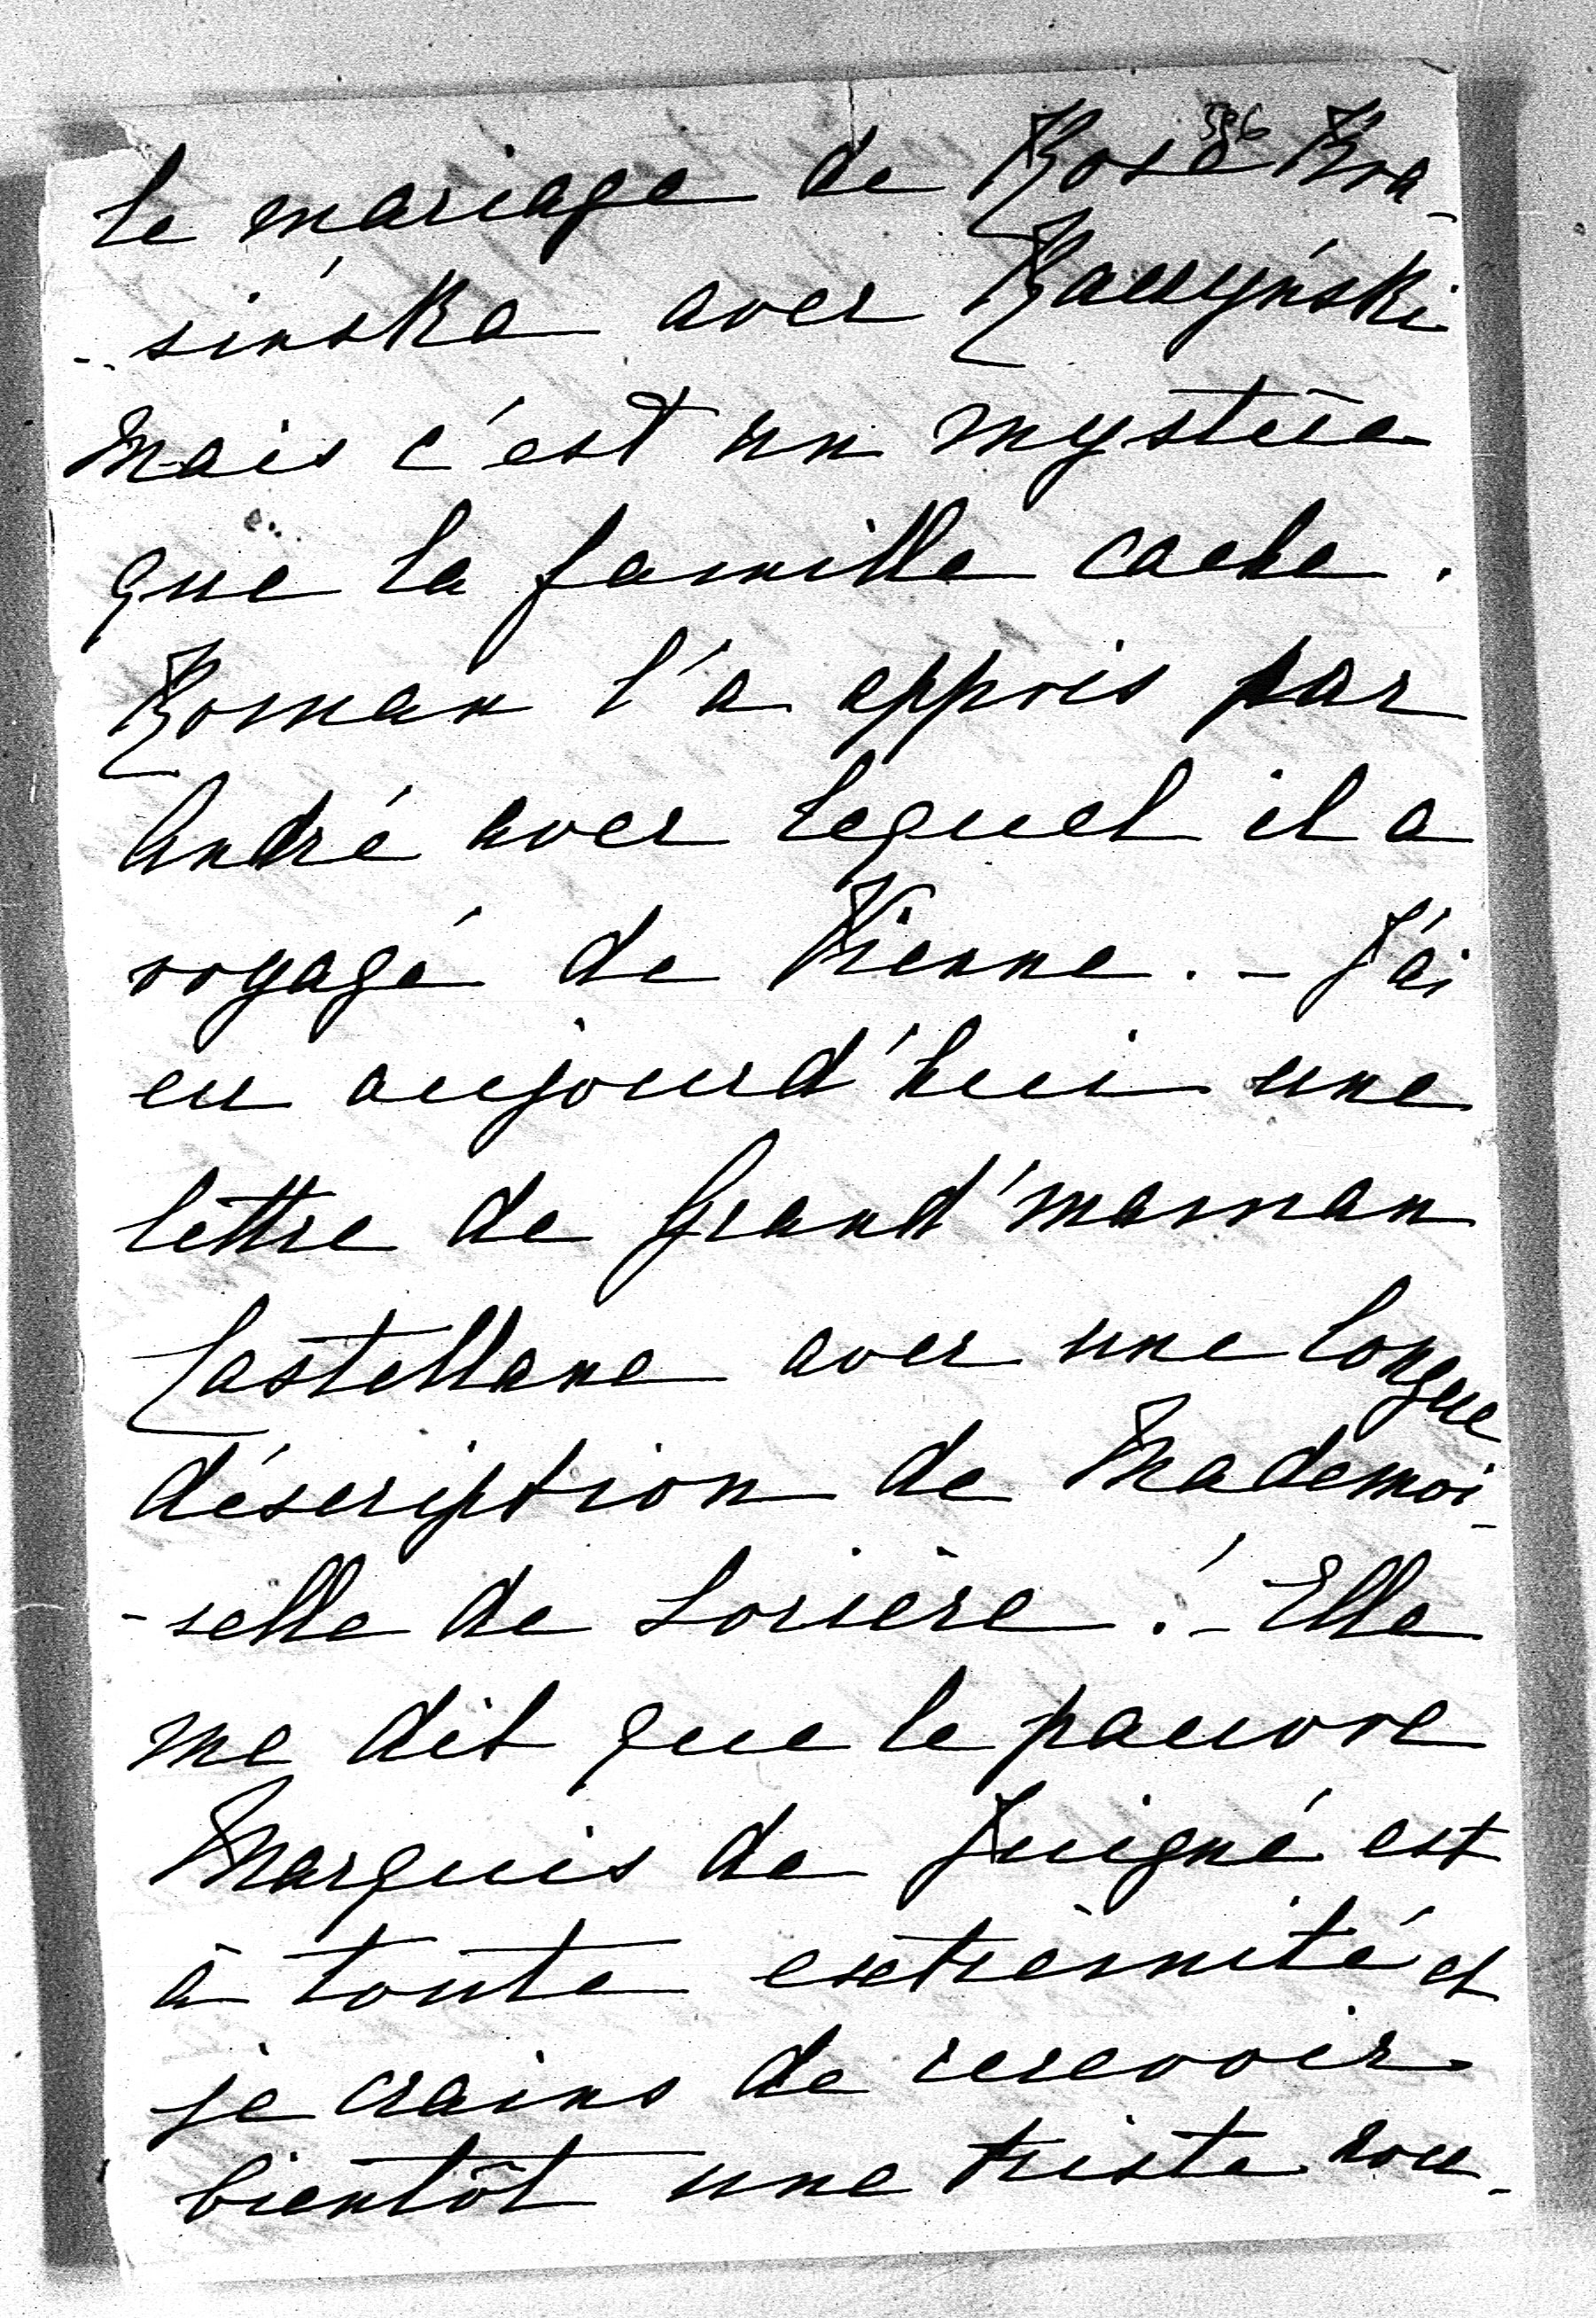 396
le mariage de Rose Kra-
-sińska avec Raczyński
mais c'est un mystère
que la famille cache.
Roman l'a appris par
André avec lequel il a
voyagé de Vienne. - J'ai
eu aujourd'hui une
lettre de Grand'maman
Castellane avec une longue
déscription de Mademoi-
-selle de Lorière! - Elle
me dit que le pauvre
Marquis de Juigné est
à toute extrèmité et
je crains de recevoir
bientôt une triste nou-